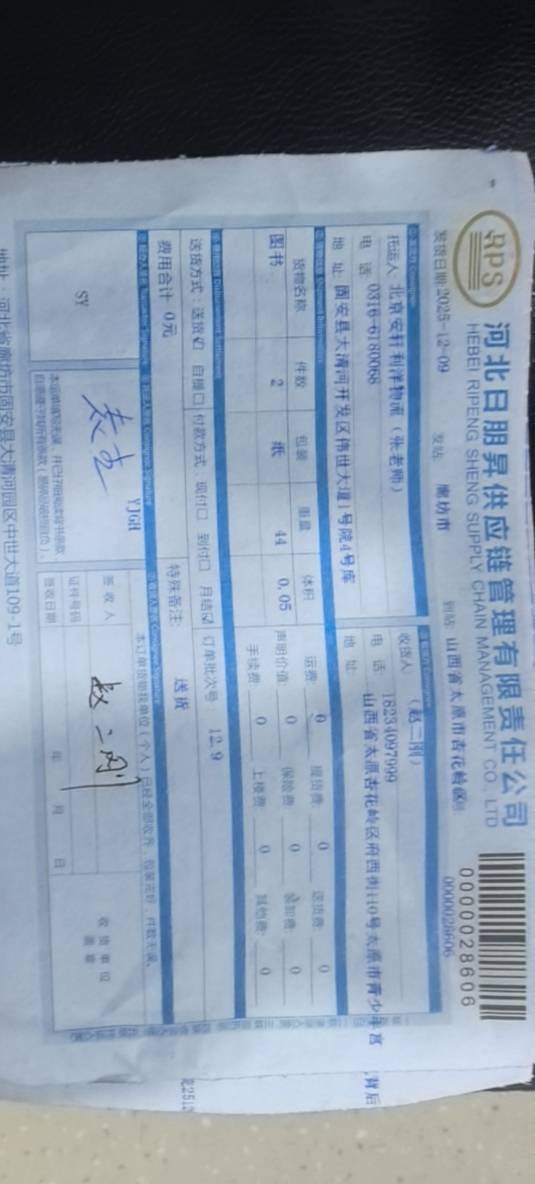 RPS
河北日朋昇供应链管理有限责任公司
HEBEI RIPENG SHENG SUPPLY CHAIN MANAGEMENT CO., LTD
0000028606
发货日期:2025-12-09 发站: 廊坊市 到站: 山西省太原市杏花岭区 0000028606
托运人 北京安轩利洋物流（张老师） 收货人 （赵二刚）
电 话 0316-6180068 电 话 18234097999
地 址 固安县大清河开发区伟世大道1号院4号库 地 址 山西省太原杏花岭区府西街110号太原市青少年宫
背后
货物名称 件数 包装 重量 体积 运费: 0 提货费: 0 送货费: 0
图书 2 纸 44 0.05 声明价值: 0 保险费: 0 装卸费: 0
手续费: 0 上楼费: 0 其他费: 0
送货方式: 送货☑ 自提口 付款方式: 现付口 到付口 月结☑ 订单批次号 12.9
费用合计 0元 特殊备注: 送货
SY
YJGH
本订单货物我单位（个人）已经全部收齐，包装完好，件数无误。
签收人 赵二刚
证件号码
签收日期 年 月 日
收货单位
盖章
地址：河北省廊坊市固安县大清河园区中世大道109-1号